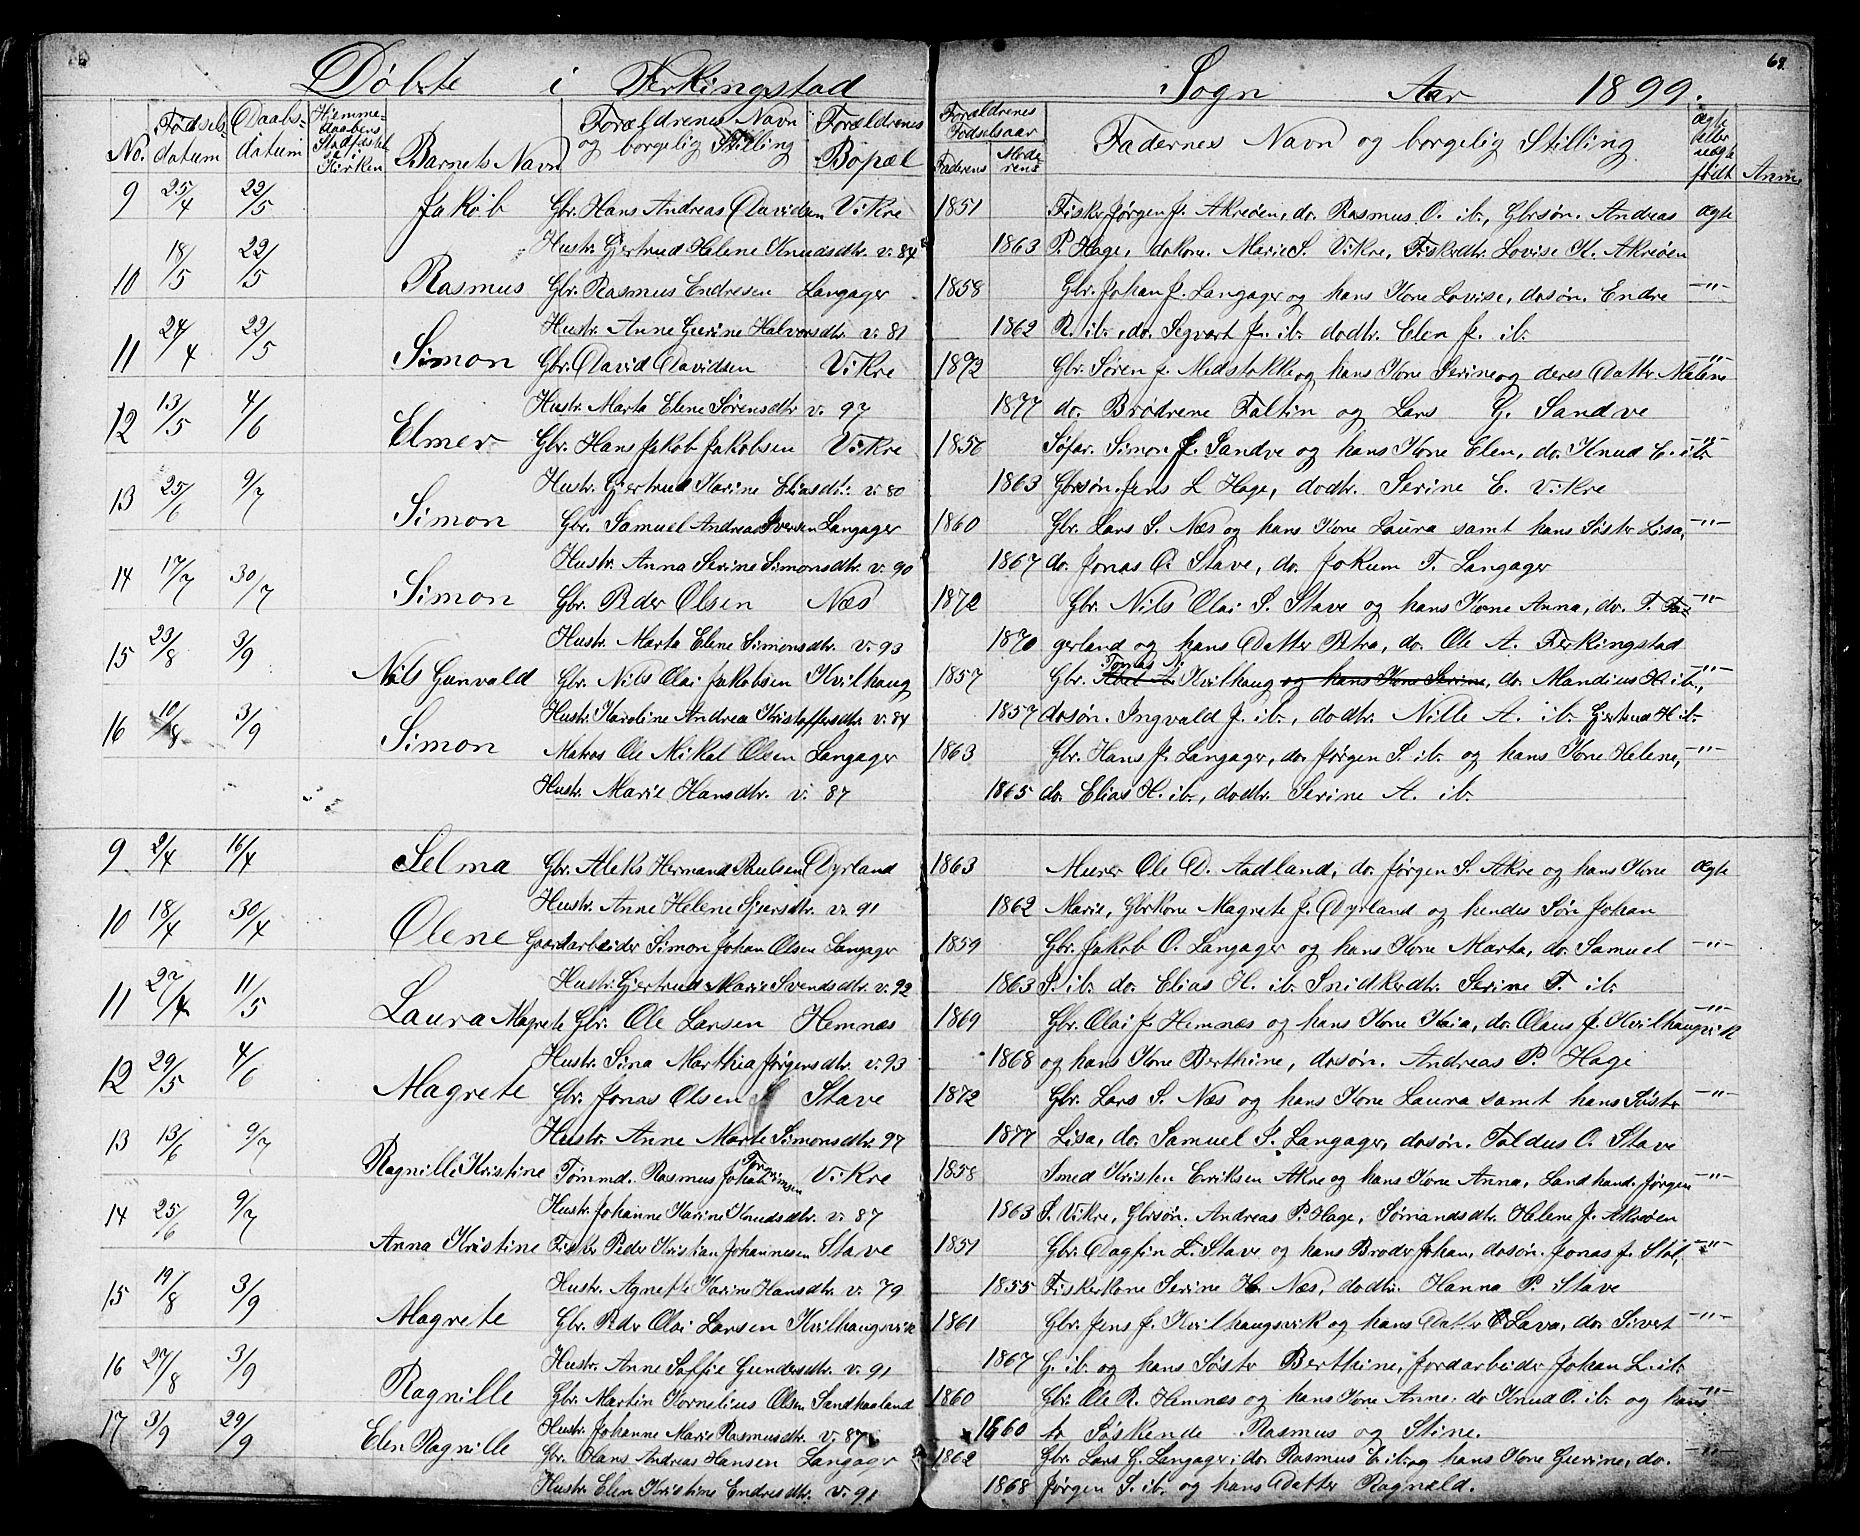 Døbte i Ferkingstad Sogn Aar 1899.
69.
No. Fødsels-datum Daabs-datum Hjemme-daabens Stadfæstelse i Kirken Barnets Navn Forældrenes Navn og borgelig Stilling Forældrenes Bopæl Forældrenes Fødselsaar Faderens Moderens Fadernes Navn og borgelig Stilling ægte eller uægte født Anm.
9 25/4 22/5 Jakob Gbr. Hans Andreas Davidsen Vikre 1851 Fisker Jørgen J. Akreøen, do. Rasmus O. ib., Gbrsøn. Andreas ægte
Hustr. Gjertrud Helene Knudsdtr. v. 84 1863 P. Hage, dokone. Marie S. Vikre, Fiskerdtr. Lovise K. Akreøen
10 18/5 22/5 Rasmus Gbr. Rasmus Endresen Langager 1858 Gbr. Johan J. Langager og hans Kone Lovise, dosøn. Endre -"-
Hustr. Anne Gurine Halvorsdtr. v. 81 1862 R. ib., do. Segvart J. ib. dodtr. Elen J. ib.
11 24/4 22/5 Simon Gbr. David Davidsen Vikre 1872 Gbr. Søren J. Medstokke og hans Kone Serine og deres Datter Malene -"-
Hustr. Marta Elene Sørensdtr. v. 97 1877 do. Brødrene Faltin og Lars G. Sandve
12 13/5 4/6 Elmer Gbr. Hans Jakob Jakobsen Vikre 1856 Søfar. Simon J. Sandve og hans Kone Elen, do. Knud E. ib. -"-
Hustr. Gjertrud Karine Eliasdtr. v. 80 1863 Gbrsøn. Jens L. Hage, dodtr. Serine E. Vikre
13 25/6 9/7 Simon Gbr. Samuel Andreas Iversen Langager 1860 Gbr. Lars S. Næs og hans Kone Laura samt hans Søster Lisa, -"-
Hustr. Anna Serine Simonsdtr. v. 90 1867 do. Jonas O. Stave, do. Jokum T. Langager
14 17/7 30/7 Simon Gbr. Peder Olsen Næs 1872 Gbr. Nils Olai S. Stave og hans Kone Anna, do. T. Fa- -"-
Hustr. Marta Elene Simonsdtr. v. 93 1870 gerland og hans Datter Petra, do. Ole A. Ferkingstad
15 23/8 3/9 Nils Gunvald Gbr. Nils Olai Jakobsen Kvilhaug 1857 Gbr. Tomas N. Kvilhaug og hans Kone Serine, do. Mandius H. ib., -"-
Hustr. Karoline Andrea Kristoffersdtr. v. 84 1857 dosøn. Ingvald J. ib., dodtr. Nille A. ib. Gjertrud H. ib.
16 10/8 3/9 Simon Matros Ole Mikal Olsen Langager 1863 Gbr. Hans J. Langager, do. Jørgen S. ib. og hans Kone Helene, -"-
Hustr. Marie Hansdtr. v. 87 1865 do. Elias H. ib., dodtr. Serine A. ib.
9 2/4 16/4 Selma Gbr. Aleks Hermand Paulsen Dyrland 1863 Murer Ole D. Aadland, do. Jørgen S. Akre og hans Kone ægte
Hustr. Anne Helene Sjursdtr. v. 91 1862 Marie, Gbrkone Magrete J. Dyrland og hendes Søn Johan
10 18/4 30/4 Olene Gaardarbeider Simon Johan Olsen Langager 1859 Gbr. Jakob O. Langager og hans Kone Marta, do. Samuel -"-
Hustr. Gjertrud Marie Svendsdtr. v. 92 1863 S. ib. do. Elias H. ib. Snidkerdtr. Serine T. ib.
11 27/4 11/5 Laura Magrete Gbr. Ole Larsen Hemnæs 1869 Gbr. Olai J. Hemnæs og hans Kone Kaia, do. Olaus J. Kvilhaugvik -"-
Hustr. Sina Marthea Jørgensdtr. v. 93 1868 og hans Kone Berthine, dosøn. Andreas P. Hage
12 29/5 4/6 Magrete Gbr. Jonas Olsen Stave 1872 Gbr. Lars S. Næs og hans Kone Laura samt hans Søster -"-
Hustr. Anne Marte Simonsdtr. 97 1877 Lisa, do. Samuel S. Langager, dosøn. Toldus O. Stave
13 13/6 9/7 Ragnille Kristine Tømmd. Rasmus Johan Torsimsen Vikre 1858 Smed Kristen Eriksen Akre og hans Kone Anna, Landhand. Jørgen -"-
Hustr. Johanne Karine Knudsdtr. v. 87 1863 S. Vikre, Gbrsøn. Andreas P. Hage, Sømandsdtr. Helene J. Akreøen
14 25/6 9/7 Anna Kristine Fisker Peder Kristian Johannesen Stave 1851 Gbr. Dagfin L. Stave og hans Broder Johan, dosøn. Jonas J. Støl, -"-
Hustr. Agnete Karine Hansdtr. v. 79 1855 Fiskerkone Serine H. Næs, dodtr. Hanna P. Stave
15 19/8 3/9 Magrete Gbr. Peder Olai Larsen Kvilhaugsvik 1861 Gbr. Jens J. Kvilhaugsvik og hans Datter Lava, do. Sivert -"-
Hustr. Anne Soffie Gundersdtr. v. 91 1867 G. ib. og hans Søster Berthine, Jordarbeider Johan L. ib.
16 27/8 3/9 Ragnille Gbr. Martin Kornelius Olsen Sandhaaland 1860 Gbr. Ole R. Hemnæs og hans Kone Anne. do. Knud O. ib. og hans -"-
Hustr. Johanne Marie Rasmusdtr. v. 87 1660 to Søskende Rasmus og Stine.
17 3/9 29/9 Elen Ragnille Gbr. Hans Andreas Hansen Langager 1862 Gbr. Lars G. Langager, do. Rasmus E. ib. og hans Kone Gurine, do. -"-
Hustr. Elen Kristine Endresdtr. v. 91 1868 Jørgen S. ib. og hans Datter Ragnald.